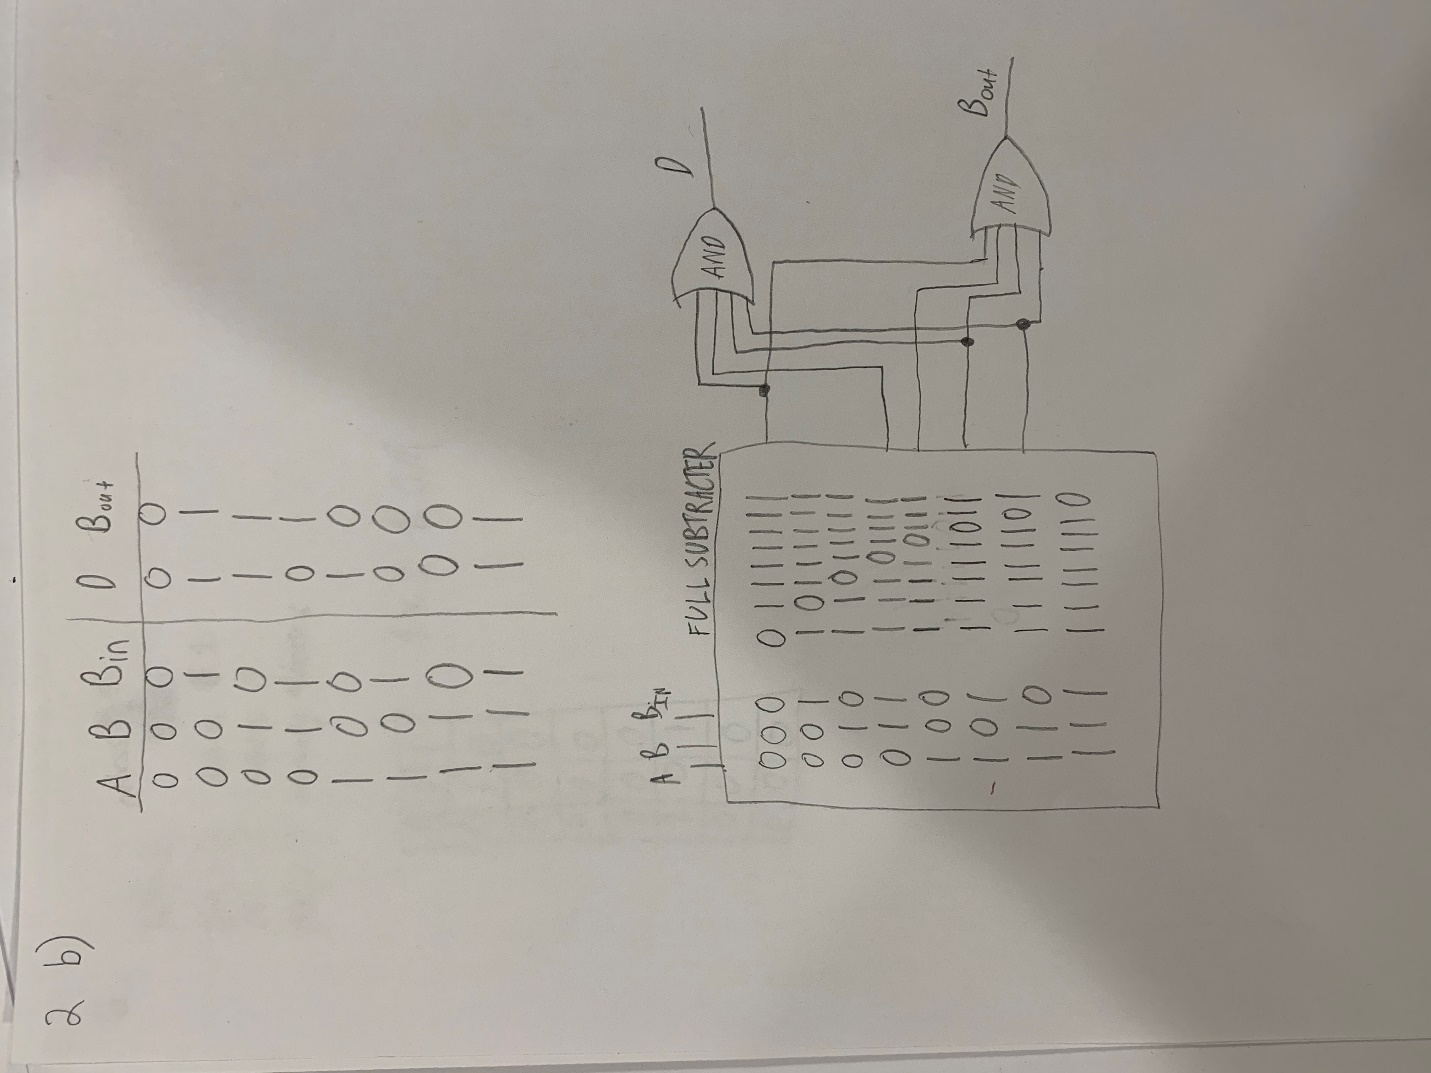 2 b)
A B Bin D Bout
0 0 0 0 0
0 0 1 1 1
0 1 0 1 1
0 1 1 0 1
1 0 0 1 0
1 0 1 0 0
1 1 0 0 0
1 1 1 1 1
A B BIN FULL SUBTRACTER
AND D
0 0 0 0 1 1 1 1 1 1 1
0 0 1 1 0 1 1 1 1 1 1
0 1 0 1 1 0 1 1 1 1 1
0 1 1 1 1 1 0 1 1 1 1
1 0 0 1 1 1 1 0 1 1 1
1 0 1 1 1 1 1 1 0 1 1
1 1 0 1 1 1 1 1 1 0 1
1 1 1 1 1 1 1 1 1 1 0
AND Bout